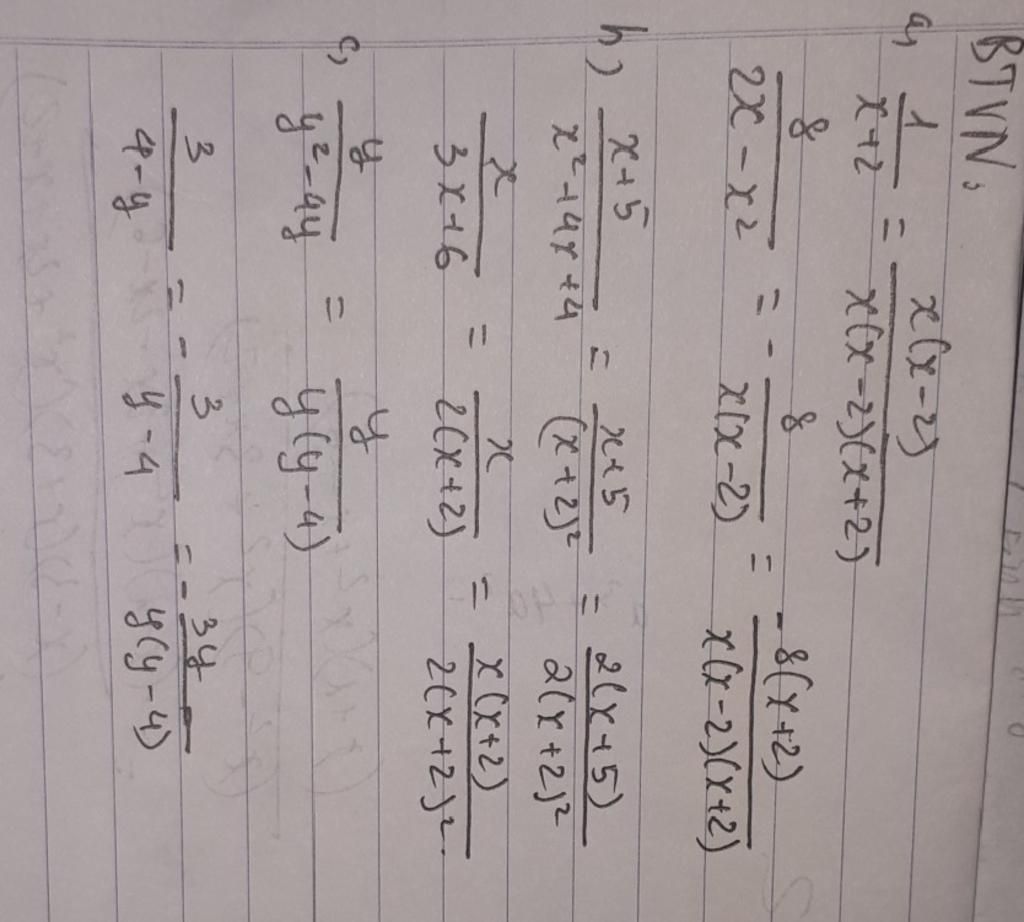 BTVN:
a, 1/(x+2) = x(x-2)/(x(x-2)(x+2))
8/(2x - x²) = - 8/(x(x-2)) = -8(x+2)/(x(x-2)(x+2))
b) (x+5)/(x²+4x+4) = (x+5)/(x+2)² = 2(x+5)/(2(x+2)²)
x/(3x+6) = x/(2(x+2)) = x(x+2)/(2(x+2)²).
c, y/(y²-4y) = y/(y(y-4))
3/(4-y) = - 3/(y-4) = - 3y/(y(y-4))